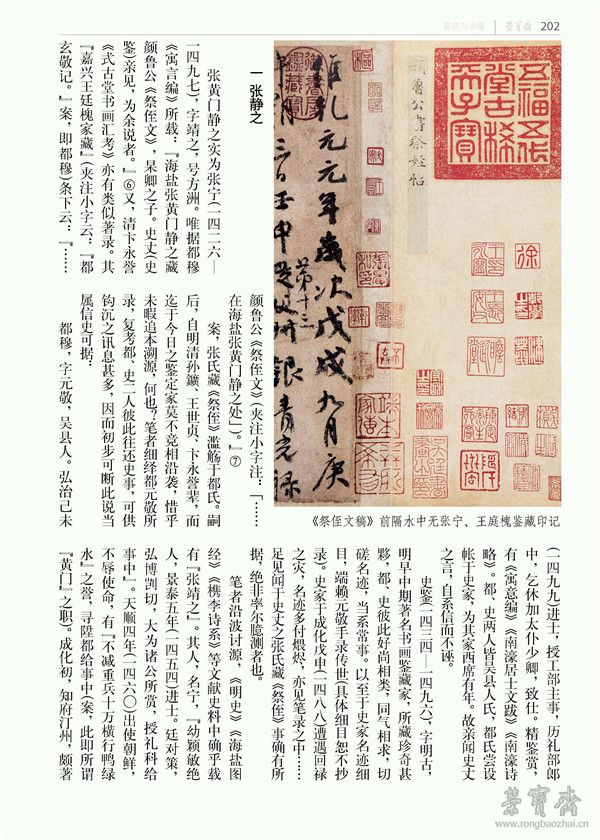 202
荣宝斋
五福五代
堂古稀
天子寶
魯公書祭姪帖
徐
維乾元元年歲次戊戌九月庚
第十三
《祭侄文稿》前隔水中无张宁、王庭槐鉴藏印记
一 张静之
张黄门静之实为张宁(一四二六—
一四九七),字靖之,号方洲。唯据都穆
《寓言编》所载:『海盐张黄门静之藏
颜鲁公《祭侄文》,杲卿之子。史丈(史
鉴)亲见,为余说者。』⑥又,清卞永誉
《式古堂书画汇考》亦有类似著录。其
『嘉兴王廷槐家藏』(夹注小字云:『都
玄敬记。』案,即都穆)条下云:『……
颜鲁公《祭侄文》(夹注小字注:「……
在海盐张黄门静之处」)。』⑦
案,张氏藏《祭侄》滥觞于都氏。嗣
后,自明清孙鑛、王世贞、卞永誉辈,而
迄于今日之鉴定家莫不竞相沿袭,惜乎
未暇追本溯源,何也?笔者细绎都元敬所
录,复考都、史二人彼此往还史事,可供
钩沉之讯息甚多,因而初步可断此说当
属信史可据:
都穆,字元敬,吴县人。弘治己未
(一四九九)进士,授工部主事,历礼部郎
中,乞休加太仆少卿,致仕。精鉴赏,
有《寓意编》《南濠居士文跋》《南濠诗
略》。都、史两人皆吴县人氏,都氏尝设
帐于史家,为其家西席有年。故亲闻史丈
之言,自系信而不诬。
史鉴(一四三四—一四九六),字明古,
明早中期著名书画鉴藏家,所藏珍奇甚
夥,都、史彼此好尚相类,同气相求,切
磋名迹,当系常事。以至于史家名迹细
目,端赖元敬手录传世(具体细目恕不抄
录)。史家于成化戊申(一四八八)遭遇回禄
之灾,名迹多付煨烬,亦见笔录之中……
足见闻于史丈之张氏藏《祭侄》事确有所
据,绝非率尔臆测者也。
笔者沿波讨源,《明史》《海盐图
经》《槜李诗系》等文献史料中确乎载
有『张靖之』。其人,名宁,『幼颖敏绝
人,景泰五年(一四五四)进士。廷对策,
弘博剀切,大为诸公所赏,授礼科给
事中』。天顺四年(一四六〇)出使朝鲜,
不辱使命,有『不减重兵十万横行鸭绿
水』之誉,寻陞都给事中(案,此即所谓
『黄门』之职)。成化初,知府汀州,颇著
荣宝斋
www.rongbaozhai.cn